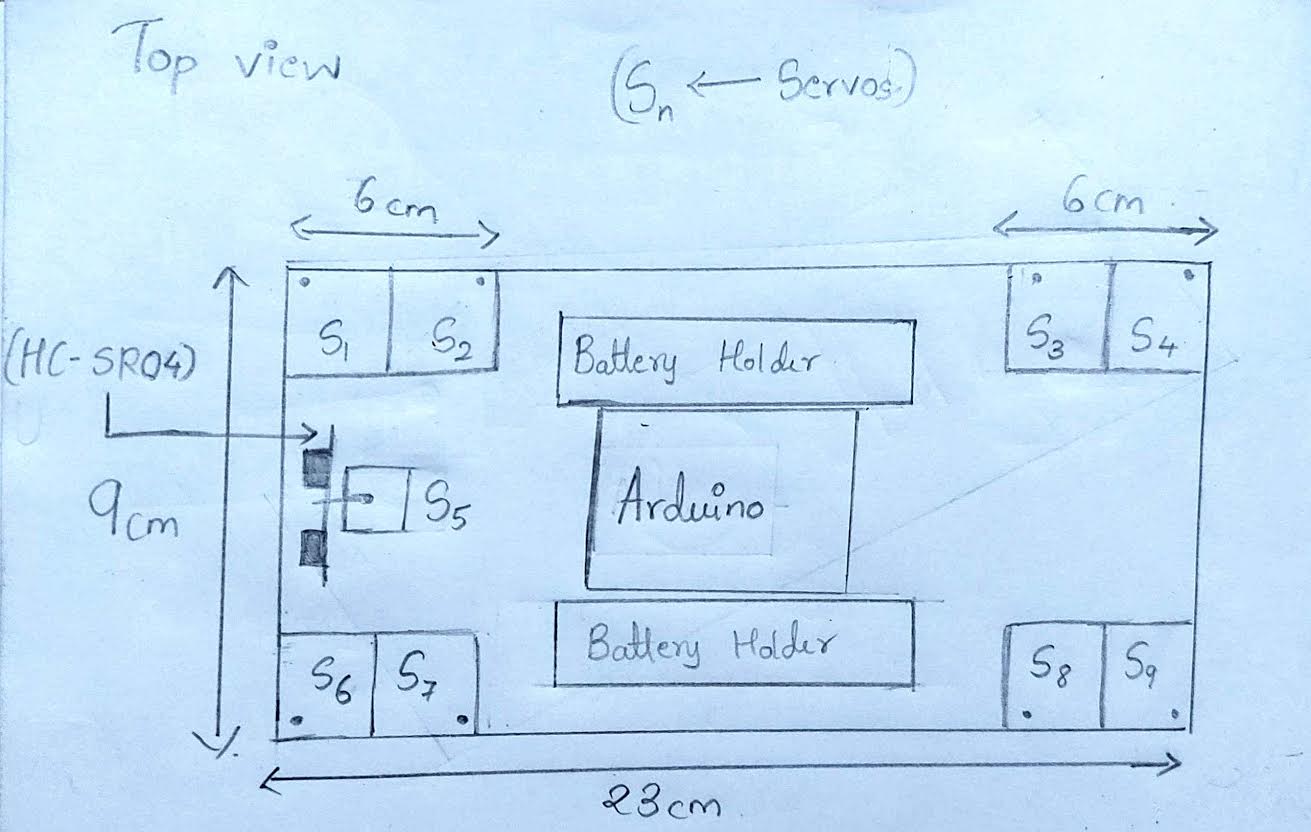 Top view
(Sn ← Servos)
6cm
6cm
S1
S2
S3
S4
Battery Holder
(HC-SR04)
S5
Arduino
9cm
Battery Holder
S6
S7
S8
S9
23cm